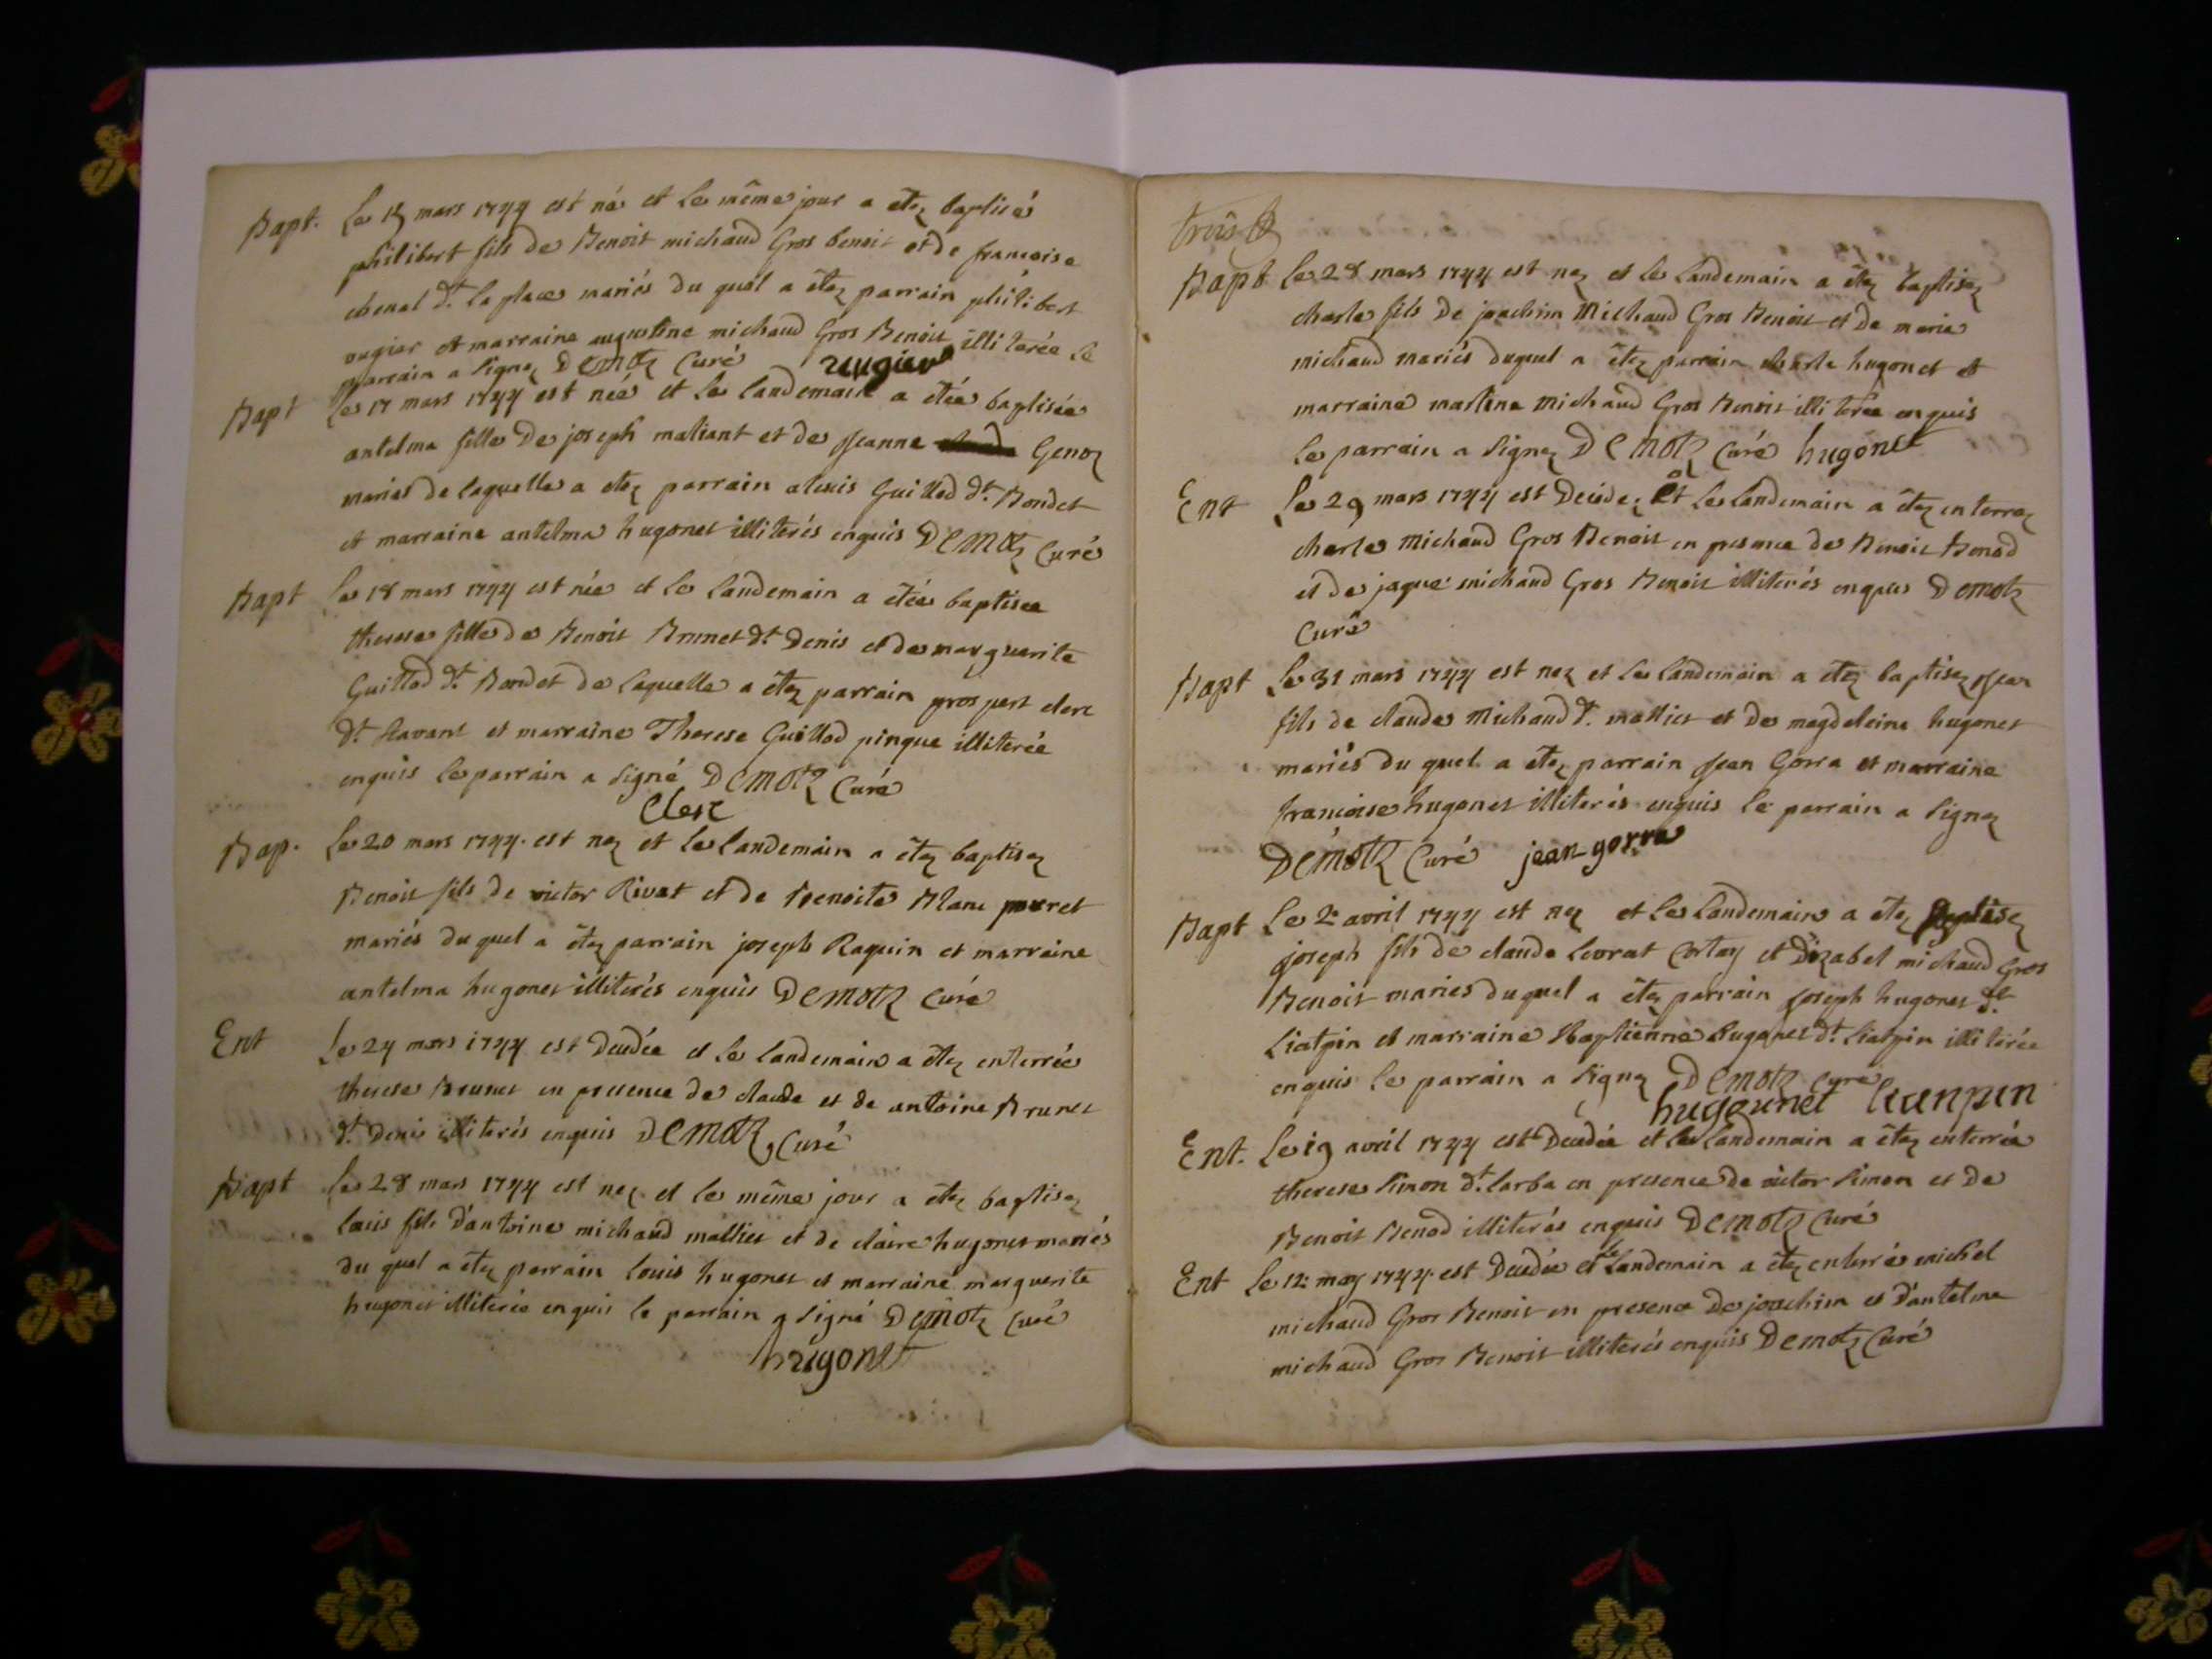 Bapt. Le 15 mars 1744 est né et le même jour a etez baptisé
philibert fils de Benoit michaud Gros benoit et de francoise
chenal dt. la place mariés du quel a étez parrain philibert
ougier et marraine augustine michaud Gros Benoit illiterée le
parrain a signez Demotz Curé rougier
Bapt Le 17 mars 1744 est née et le landemain a étée baptisée
antelma fille de joseph maliant et de Jeanne Genoz
mariés de laquelle a etez parrain alexis Guillod dt. Bondet
et marraine antelma hugonet illiterés enquis Demotz Curé
Bapt Le 18 mars 1744 est née et le landemain a étée baptisee
therese fille de Benoit Brunet dt. Denis et de marguerite
Guillod dt. Bondet de laquelle a étez parrain prospert clerc
dt. Savant et marraine Therese Guillod pingue illiterée
enquis le parrain a signé Demotz Curé
Clerc
Bap. Le 20 mars 1744. est nez et le landemain a étez baptisez
Benoit fils de victor Rivat et de Benoite Blanc pouret
mariés du quel a étez parrain joseph Raquin et marraine
antelma hugonet illiterés enquis Demotz Curé
Ent Le 24 mars 1744 est Decedée et le landemain a étez enterrée
therese Brunet en presence de claude et de antoine Brunet
dt. Denis illiterés enquis Demotz Curé
Bapt Le 28 mars 1744 est nez et le même jour a étez baptisez
louis fils d'antoine michaud mallict et de claire hugonet mariés
du quel a étez parrain louis hugonet et marraine marguerite
hugonet illiterée enquis le parrain a signé Demotz Curé
hugonet
trois
Bapt Le 28 mars 1744 est nez et le landemain a étez baptisez
charle fils de joachim Michaud Gros Benoit et de marie
michaud mariés duquel a étez parrain charle hugonet et
marraine martina Michaud Gros Benoit illiterée enquis
le parrain a signez Demotz Curé hugonet
Ent Le 29 mars 1744 est Decedez et le landemain a étez enterrez
charle Michaud Gros Benoit en presence de Benoit Benod
et de jaque michaud Gros Benoit illiterés enquis Demotz
Curé
Bapt Le 31 mars 1744 est nez et le landemain a étez baptisez Jean
fils de claude Michaud dt. mallict et de magdeleine hugonet
mariés du quel a étez parrain Jean Gorra et marraine
francoise hugonet illiterés enquis le parrain a signez
Demotz Curé jean gorra
Bapt Le 2e avril 1744 est nez et le landemain a étez baptisez
joseph fils de claude levrat Cortay et Dizabel michaud Gros
Benoit mariés duquel a étez parrain Joseph hugonet dt.
Liatpin et marraine hugonet dt. Liatpin illiterée
enquis le parrain a signez Demotz Curé
hugounet lianpin
Ent. Le 19 avril 1744 est Decedée et le landemain a étez enterrée
therese Simon dt. larba en presence de victor Simon et de
Benoit Benod illiterés enquis Demotz Curé
Ent Le 12: may 1744. est Decedée et le landemain a étez enterré michel
michaud Gros Benoit en presence de joachim et d'antelme
michaud Gros Benoit illiterés enquis Demotz Curé